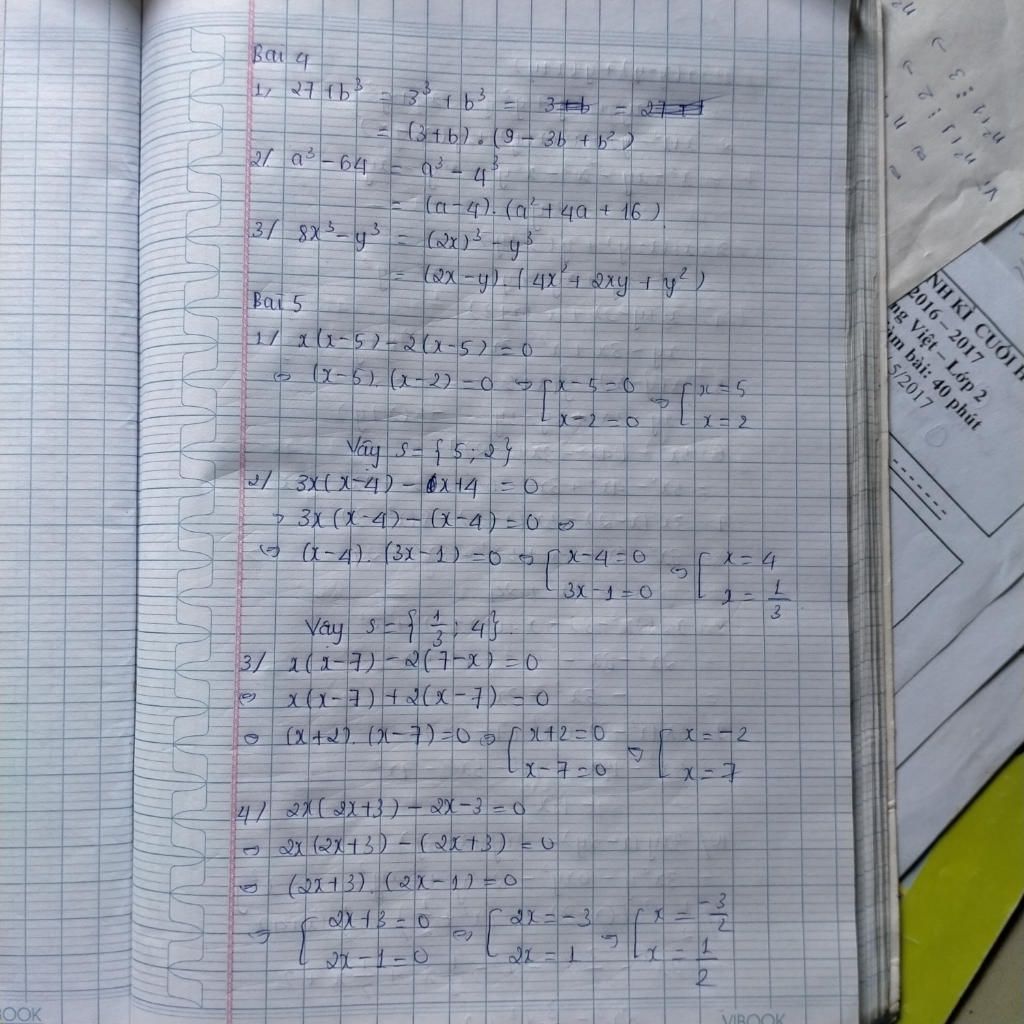 Bài 4
1, 27 + b³ = 3³ + b³ =
= (3+b).(9 - 3b + b²)
2/ a³ - 64 = a³ - 4³
= (a-4).(a² + 4a + 16)
3/ 8x³ - y³ = (2x)³ - y³
= (2x-y).(4x² + 2xy + y²)
Bài 5
1/ x(x-5) - 2(x-5) = 0
⇔ (x-5).(x-2) = 0 ⇔ [x-5=0 ⇔ [x=5
x-2=0 x=2
Vậy S={5;2}
2/ 3x(x-4) - x+4 = 0
⇔ 3x(x-4) - (x-4) = 0 ⇔
⇔ (x-4).(3x-1) = 0 ⇔ [x-4=0 ⇔ [x=4
3x-1=0 x=1/3
Vậy S={1/3; 4}
3/ x(x-7) - 2(7-x) = 0
⇔ x(x-7) + 2(x-7) = 0
⇔ (x+2).(x-7)=0 ⇔ [x+2=0 ⇔ [x=-2
x-7=0 x=7
4/ 2x(2x+3) - 2x-3 = 0
⇔ 2x(2x+3) - (2x+3) = 0
⇔ (2x+3).(2x-1) = 0
⇔ [2x+3=0 ⇔ [2x=-3 ⇔ [x=-3/2
2x-1=0 2x=1 x=1/2
BOOK
VIBOOK
NH KÌ CUỐI
2016 – 2017
ng Việt – Lớp 2
àm bài: 40 phút
5/2017